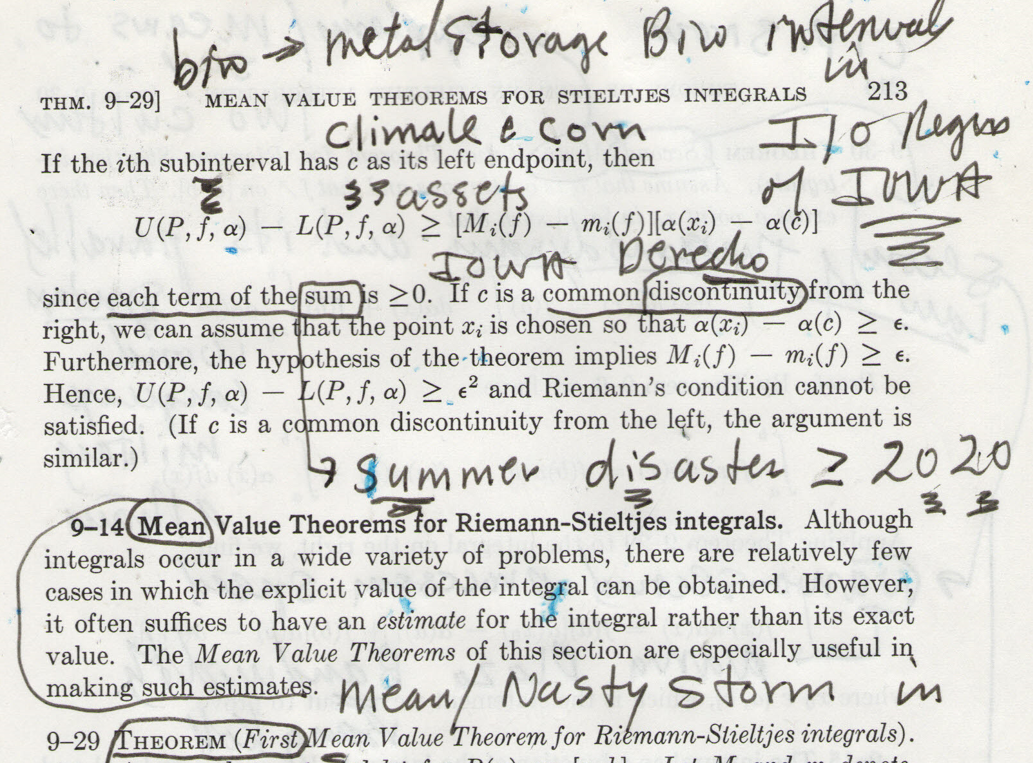 bin → metal storage Bin interval
in
THM. 9–29] MEAN VALUE THEOREMS FOR STIELTJES INTEGRALS 213
climate & corn
If the ith subinterval has c as its left endpoint, then
of IOWA
assets
U(P, f, α) − L(P, f, α) ≥ [Mᵢ(f) − mᵢ(f)][α(xᵢ) − α(c)]
IOWA Derecho
since each term of the sum is ≥0. If c is a common discontinuity from the
right, we can assume that the point xᵢ is chosen so that α(xᵢ) − α(c) ≥ ϵ.
Furthermore, the hypothesis of the theorem implies Mᵢ(f) − mᵢ(f) ≥ ϵ.
Hence, U(P, f, α) − L(P, f, α) ≥ ϵ² and Riemann's condition cannot be
satisfied. (If c is a common discontinuity from the left, the argument is
similar.)
→ Summer disaster ≥ 2020
9–14 Mean Value Theorems for Riemann-Stieltjes integrals. Although
integrals occur in a wide variety of problems, there are relatively few
cases in which the explicit value of the integral can be obtained. However,
it often suffices to have an estimate for the integral rather than its exact
value. The Mean Value Theorems of this section are especially useful in
making such estimates.
Mean/Nasty Storm in
9–29 THEOREM (First Mean Value Theorem for Riemann-Stieltjes integrals).